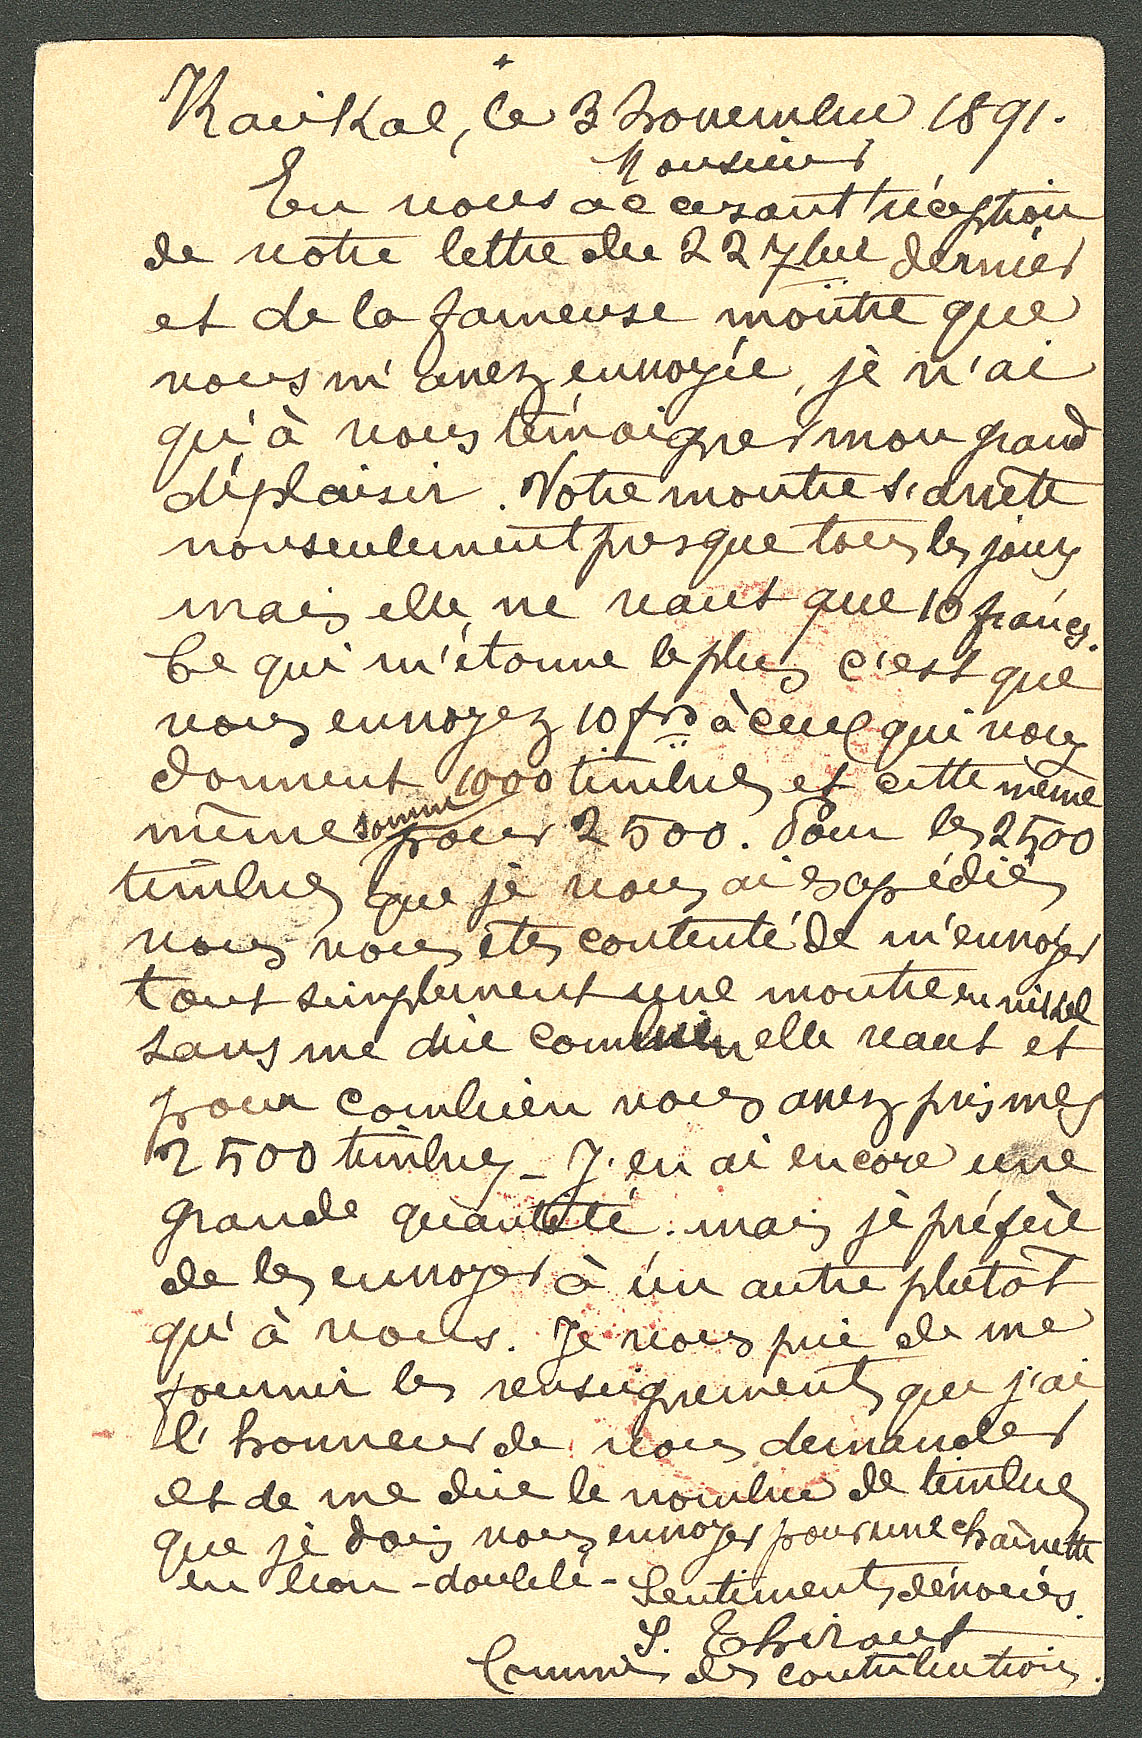 Karikal, le 3 novembre 1891.
Monsieur
En vous accusant réception
de votre lettre du 22 7bre dernier
et de la fameuse montre que
vous m'avez envoyée, je n'ai
qu'à vous témoigner mon grand
déplaisir. Votre montre s'arrête
nonseulement presque tous les jours
mais elle ne vaut que 10 francs.
Ce qui m'étonne le plus c'est que
vous envoyez 10 frs à ceux qui vous
donnent 1000 timbres et cette même
même somme pour 2500. Pour les 2500
timbres que je vous ai expédiés
vous vous êtes contenté de m'envoyer
tout simplement une montre en nickel
sans me dire combien elle vaut et
pour combien vous avez pris mes
2500 timbres - J'en ai encore une
grande quantité. mais je préfère
de les envoyer à un autre plutôt
qu'à vous. Je vous prie de me
fournir les renseignements que j'ai
l'honneur de vous demander
et de me dire le nombre de timbres
que je dois vous envoyer pour une chaînette
en doublé - Sentiments dévoués.
S.
Commis des contributions.